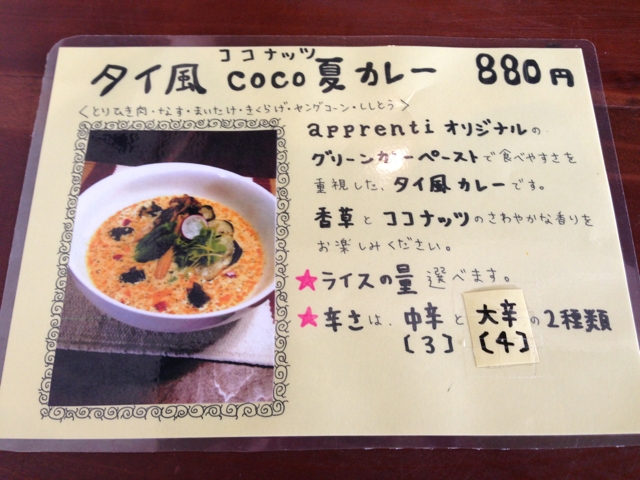 ココナッツ
タイ風 coco夏カレー 880円
＜とりひき肉・なす・まいたけ・きくらげ・ヤングコーン・ししとう＞
apprentiオリジナルの
グリーンカレーペーストで食べやすさを
重視した、タイ風カレーです。
香草とココナッツのさわやかな香りを
お楽しみください。
★ライスの量選べます。
★辛さは、中辛と大辛の2種類
[3] [4]